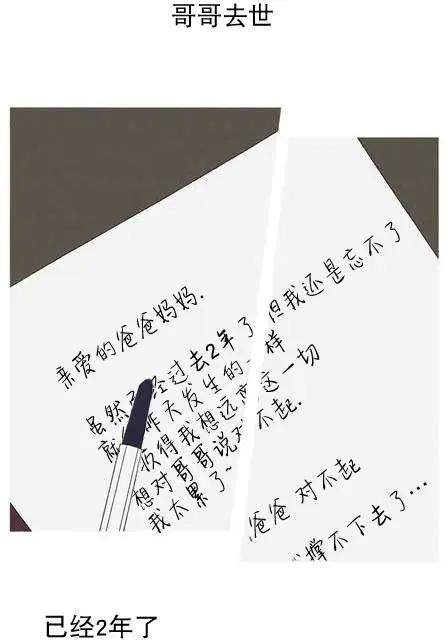 哥哥去世
亲爱的爸爸妈妈.
虽然 经过去2年了 但我还是忘不了
就 昨天发生的一样
得我想远离这一切
想对哥哥说对不起.
我太累了~
爸爸 对不起
撑不下去了…
已经2年了